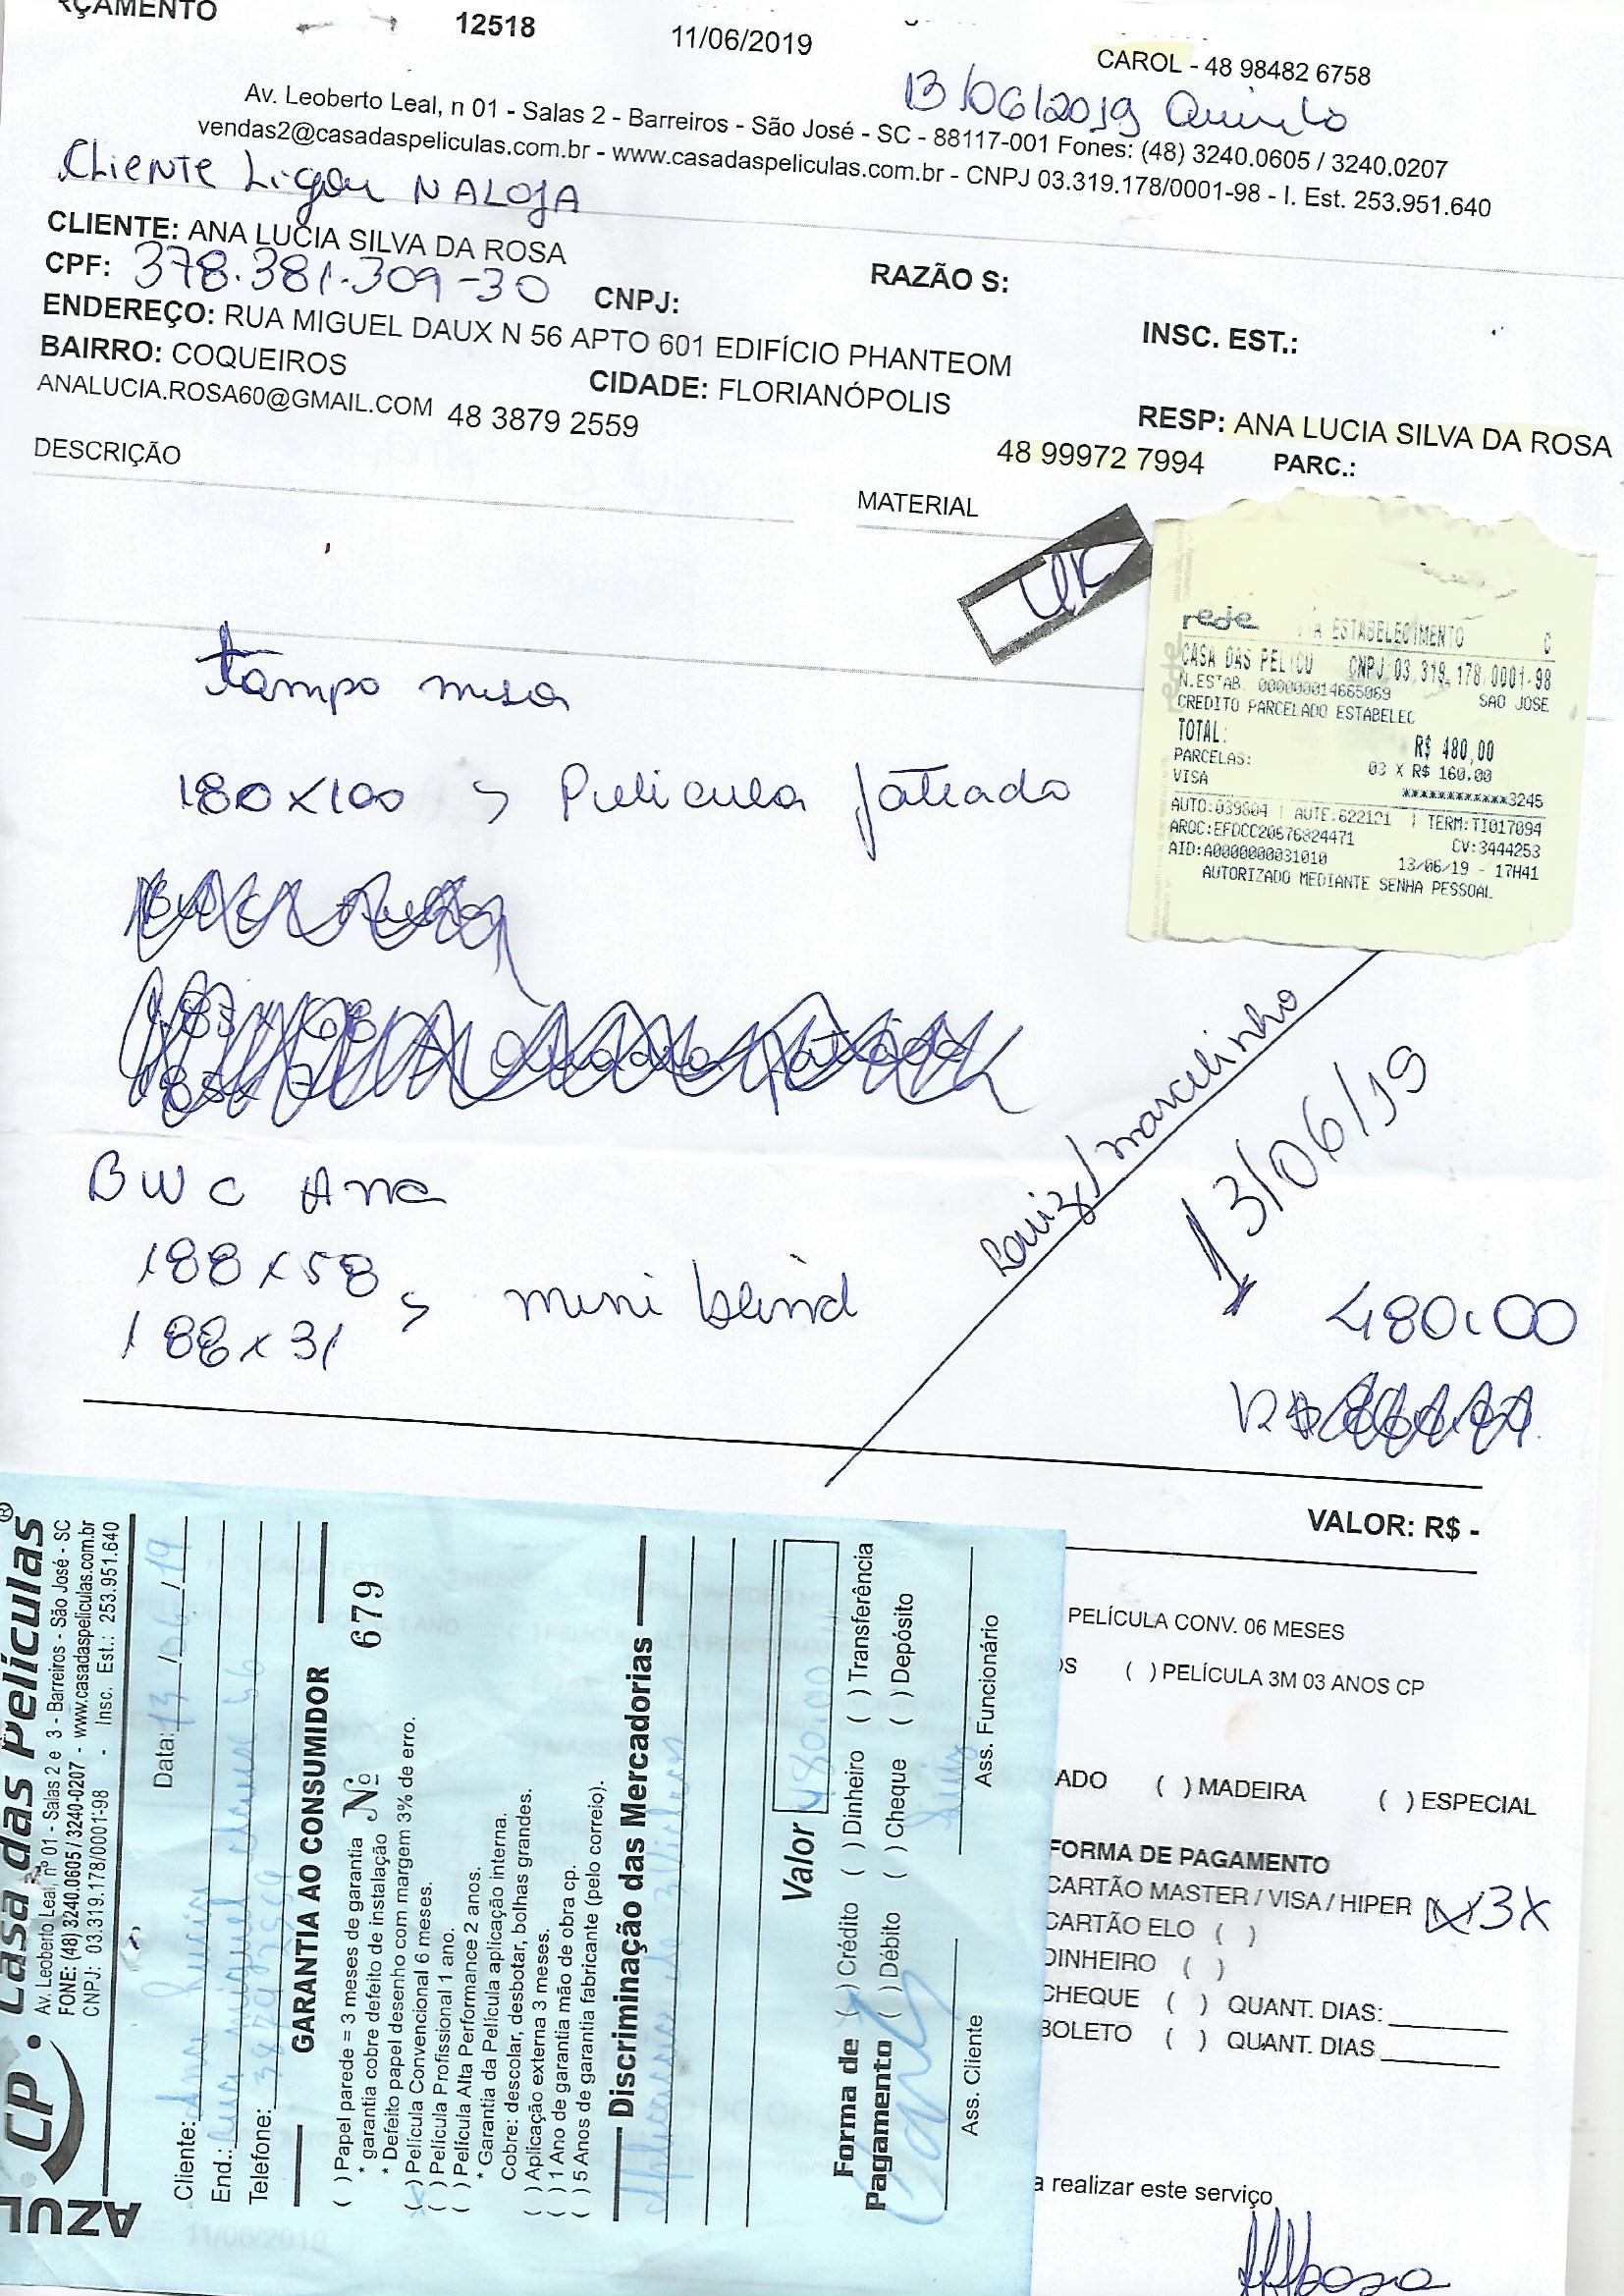 RÇAMENTO 12518 11/06/2019
CAROL - 48 98482 6758
13/06/2019 Quinta
Av. Leoberto Leal, n 01 - Salas 2 - Barreiros - São José - SC - 88117-001 Fones: (48) 3240.0605 / 3240.0207
vendas2@casadaspeliculas.com.br - www.casadaspeliculas.com.br - CNPJ 03.319.178/0001-98 - I. Est. 253.951.640
Cliente Ligou NA LOJA
CLIENTE: ANA LUCIA SILVA DA ROSA
CPF: 378.381.309-30 CNPJ: RAZÃO S:
ENDEREÇO: RUA MIGUEL DAUX N 56 APTO 601 EDIFÍCIO PHANTEOM INSC. EST.:
BAIRRO: COQUEIROS CIDADE: FLORIANÓPOLIS
ANALUCIA.ROSA60@GMAIL.COM 48 3879 2559
RESP: ANA LUCIA SILVA DA ROSA
48 99972 7994 PARC.:
DESCRIÇÃO MATERIAL
rede VIA ESTABELECIMENTO C
CASA DAS PELICU CNPJ:03.319.178/0001-98
N.ESTAB. 000000014665069 SAO JOSE
CREDITO PARCELADO ESTABELEC
TOTAL: R$ 480,00
PARCELAS: 03 X R$ 160.00
VISA ************3245
AUTO:039804 | AUTE:622121 | TERM:TI017094
ARQC:EFDCC20576824471 CV:3444253
AID:A0000000031010 13/06/19 - 17H41
AUTORIZADO MEDIANTE SENHA PESSOAL
tampo mesa
180x100 > Pelicula Jateado
BWC Ana
188x58
188x31 > mini blind
Luiz/marcelinho
13/06/19
480,00
VALOR: R$ -
PELÍCULA CONV. 06 MESES
OS ( ) PELÍCULA 3M 03 ANOS CP
ADO ( ) MADEIRA ( ) ESPECIAL
FORMA DE PAGAMENTO
CARTÃO MASTER / VISA / HIPER (X) 3X
CARTÃO ELO ( )
DINHEIRO ( )
CHEQUE ( ) QUANT. DIAS:
BOLETO ( ) QUANT. DIAS
a realizar este serviço
AZUL
CP. Casa das Películas®
Av. Leoberto Leal, nº 01 - Salas 2 e 3 - Barreiros - São José - SC
FONE: (48) 3240.0605 / 3240-0207 - www.casadaspeliculas.com.br
CNPJ: 03.319.178/0001-98 - Insc. Est.: 253.951.640
Cliente: Ana Lucia Data: 13/06/19
End.: Rua miguel daux 56
Telefone: 38792559
GARANTIA AO CONSUMIDOR
( ) Papel parede = 3 meses de garantia Nº 679
* garantia cobre defeito de instalação
* Defeito papel desenho com margem 3% de erro.
(X) Película Convencional 6 meses.
( ) Película Profissional 1 ano.
( ) Película Alta Performance 2 anos.
* Garantia da Película aplicação interna.
Cobre: descolar, desbotar, bolhas grandes.
( ) Aplicação externa 3 meses.
( ) 1 Ano de garantia mão de obra cp.
( ) 5 Anos de garantia fabricante (pelo correio).
Discriminação das Mercadorias
Aplicação de 3 Vidros
Valor 480,00
Forma de Pagamento
(X) Crédito ( ) Dinheiro ( ) Transferência
( ) Débito ( ) Cheque ( ) Depósito
Luiz
Ass. Cliente Ass. Funcionário